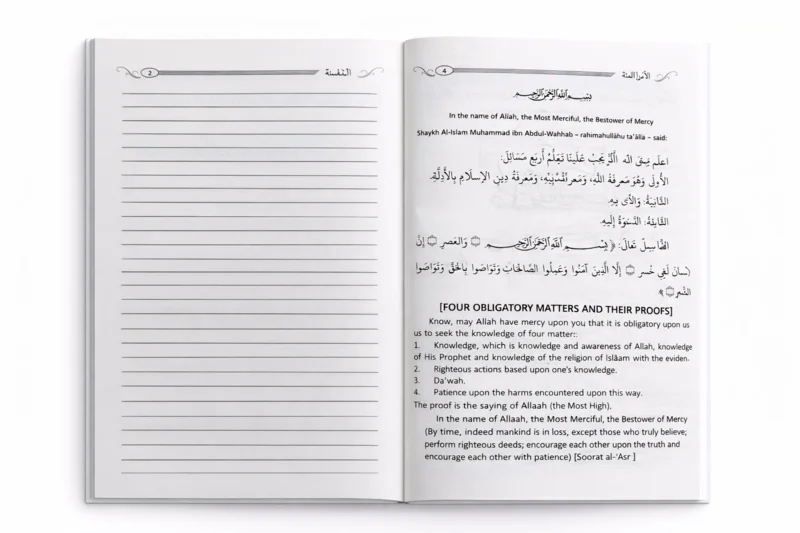 2
4
بِسْمِ اللَّهِ الرَّحْمَنِ الرَّحِيمِ
In the name of Allah, the Most Merciful, the Bestower of Mercy
Shaykh Al-Islam Muhammad ibn Abdul-Wahhab – rahimahullāhu ta'ālla – said:
اعلَم اللّه يَجِبُ عَلَينَا تَعَلُّمُ أَربَعِ مَسَائِلَ:
الأُولَى وَهُوَ مَعرِفَةُ اللَّهِ، وَمَعرِفَةُ دِينِ الإِسلَامِ بِالأَدِلَّةِ.
الثَّانِيَةُ: بِهِ.
إِلَيهِ.
تَعَالَى: ﴿ بِسْمِ اللَّهِ الرَّحْمَنِ الرَّحِيمِ ۝ وَالعَصرِ ۝ إِنَّ
لَفِي خُسرٍ ۝ إِلَّا الَّذِينَ آمَنُوا وَعَمِلُوا الصَّالِحَاتِ وَتَوَاصَوا بِالحَقِّ وَتَوَاصَوا
[FOUR OBLIGATORY MATTERS AND THEIR PROOFS]
Know, may Allah have mercy upon you that it is obligatory upon us
us to seek the knowledge of four matter:
1. Knowledge, which is knowledge and awareness of Allah, knowledge
of His Prophet and knowledge of the religion of Islāam with the eviden.
2. Righteous actions based upon one's knowledge.
3. Da'wah.
4. Patience upon the harms encountered upon this way.
The proof is the saying of Allaah (the Most High).
In the name of Allaah, the Most Merciful, the Bestower of Mercy
(By time, indeed mankind is in loss, except those who truly believe;
perform righteous deeds; encourage each other upon the truth and
encourage each other with patience) [Soorat al-'Asr ]